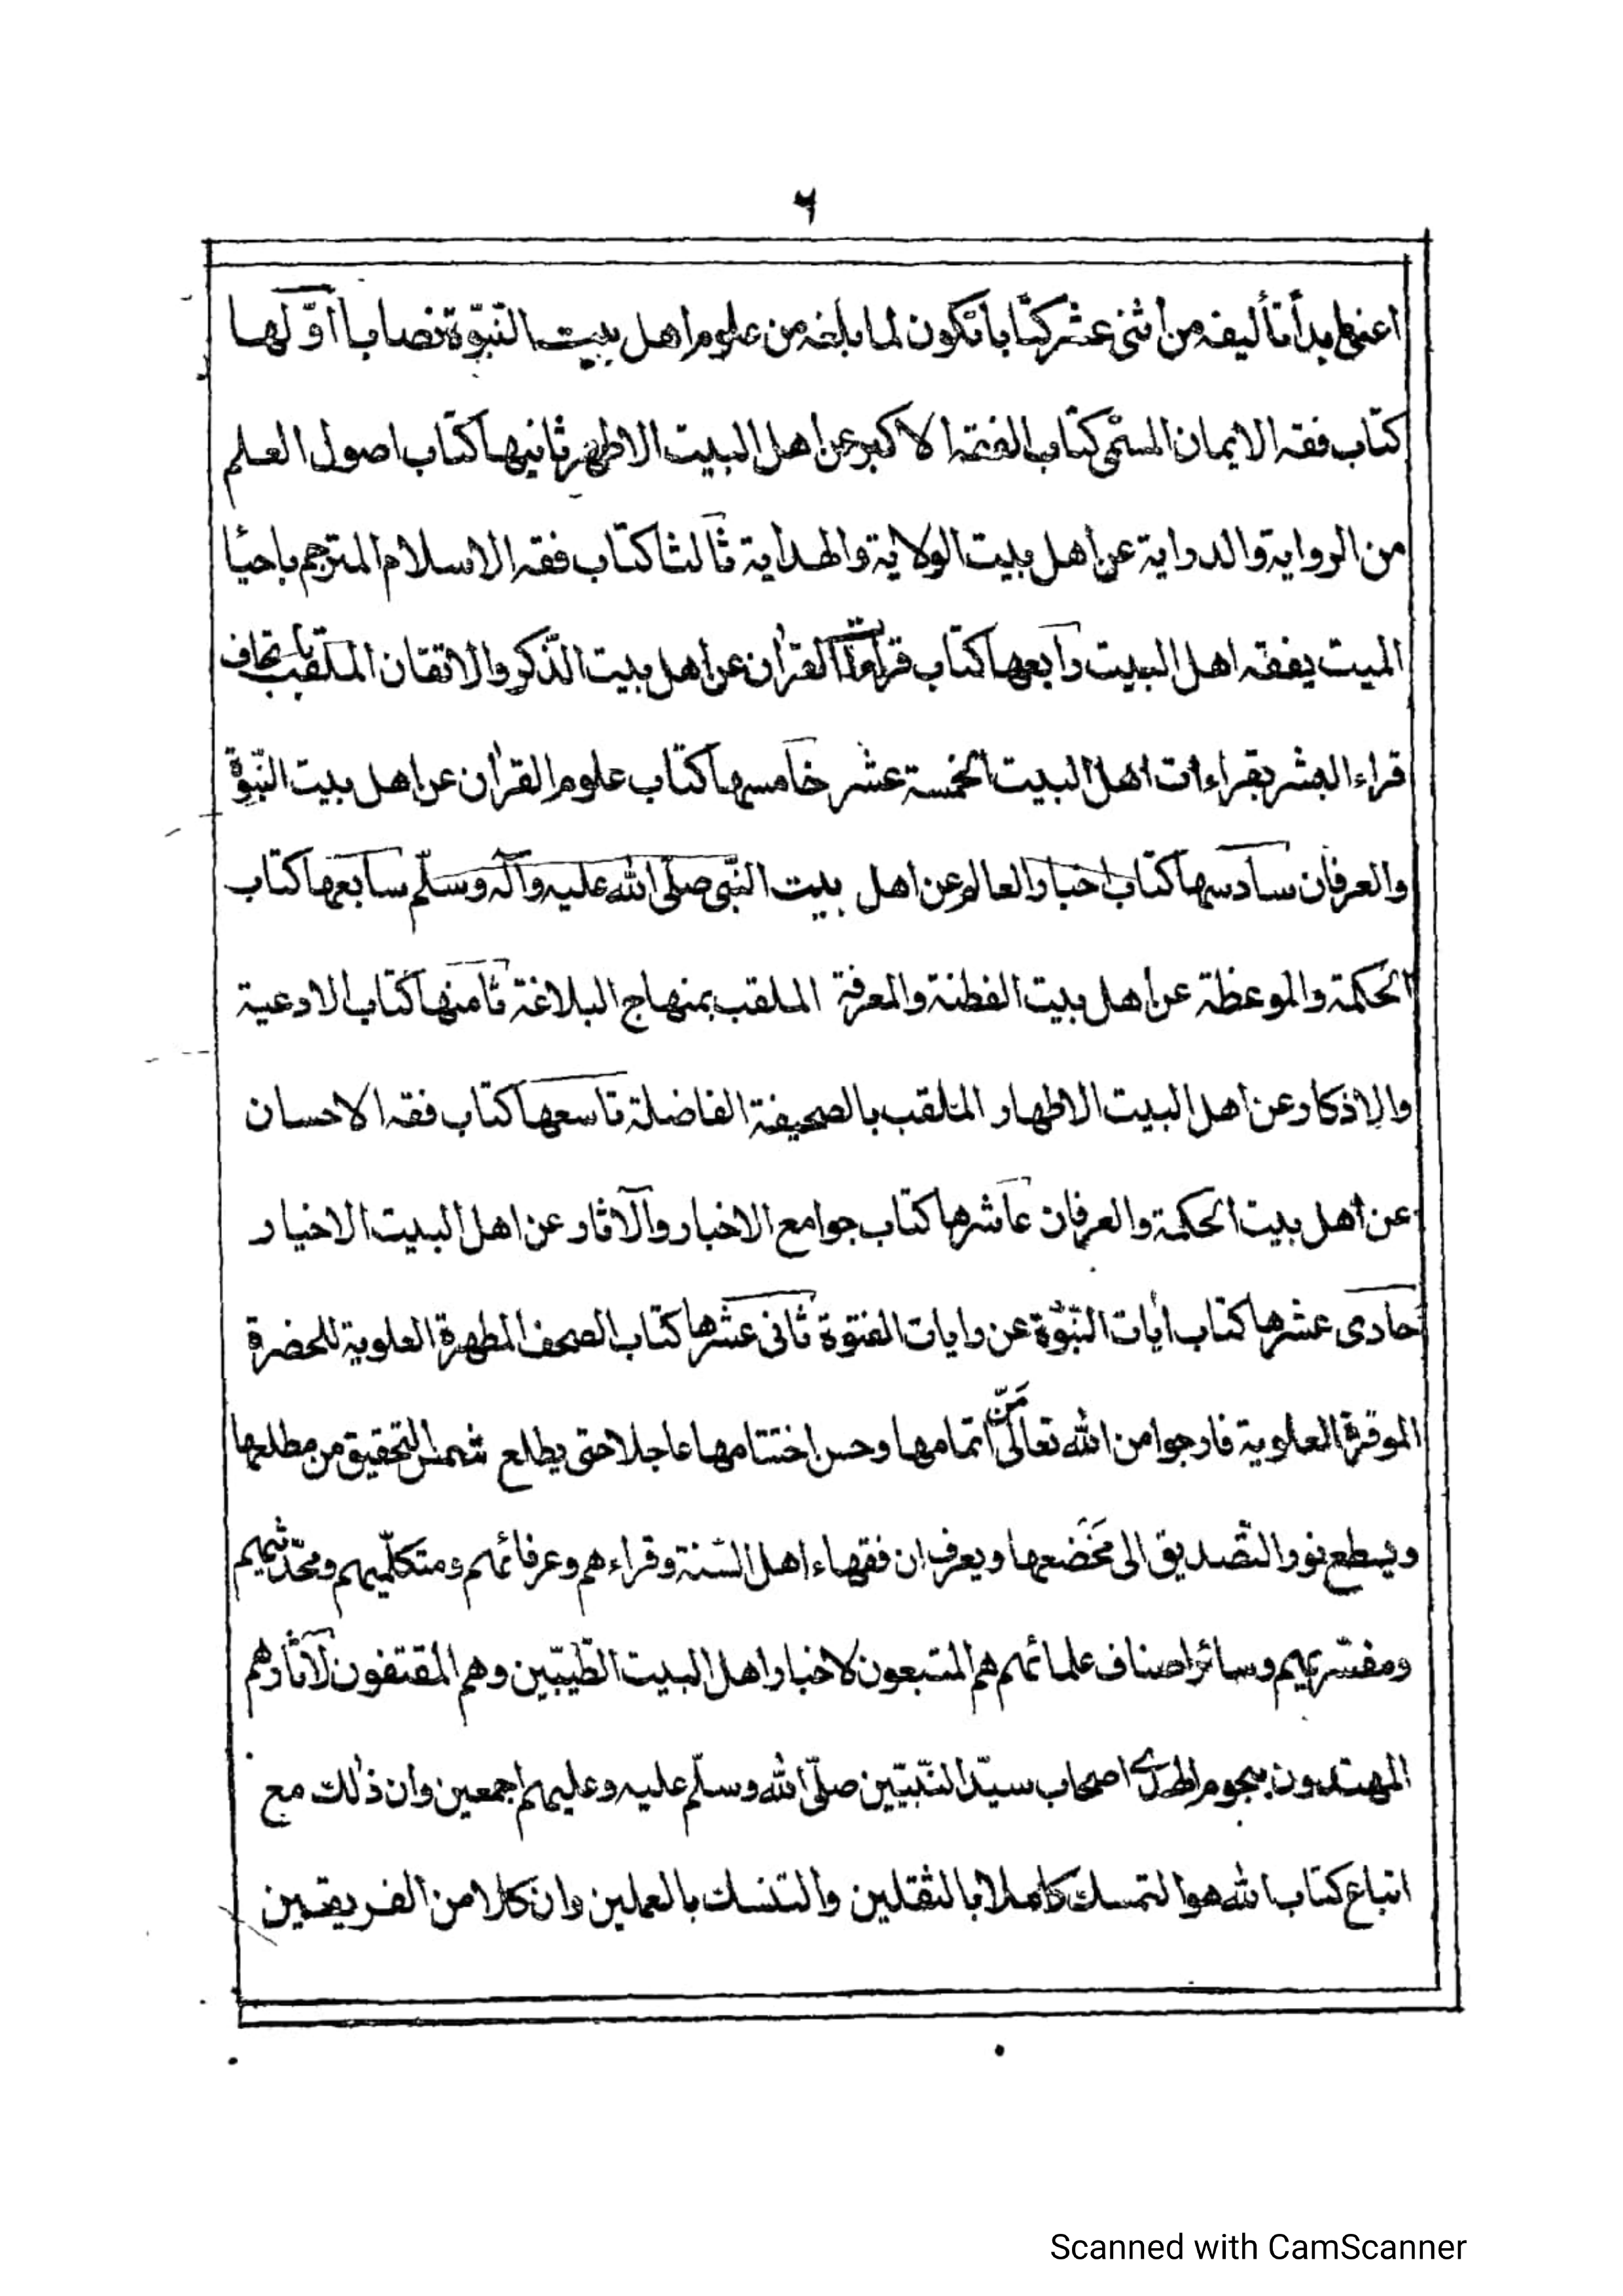 ٦
اعنى بدأ تأليفه من اثنى عشر كتابا تكون لما بلغه من علوم اهل بيت النّبوّة نصابا اوّلها
كتاب فقه الايمان المسمّى كتاب الفقه الاكبر عن اهل البيت الاطهر ثانيها كتاب اصول العلم
من الرواية والدراية عن اهل بيت الولاية والهداية ثالثا كتاب فقه الاسلام المترجم باحيا
الميت يفقه اهل البيت رابعها كتاب قراءات القرآن عن اهل بيت الذّكر والاتقان الملقب باتحاف
قراء البشر بقراءات اهل البيت الخمسة عشر خامسها كتاب علوم القرآن عن اهل بيت النّبوّة
والعرفان سادسها كتاب اخبار العالم عن اهل بيت النّبى صلّى الله عليه وآله وسلّم سابعها كتاب
الحكمة والموعظة عن اهل بيت الفطنة والمعرفة الملقب بمنهاج البلاغة ثامنها كتاب الادعية
والاذكار عن اهل البيت الاطهار الملقب بالصحيفة الفاضلة تاسعها كتاب فقه الاحسان
عن اهل بيت الحكمة والعرفان عاشرها كتاب جوامع الاخبار والآثار عن اهل البيت الاخيار
حادى عشرها كتاب ايات النّبوّة عن رايات الفتوة ثانى عشرها كتاب الصحف المطهرة العلوية للحضرة
الموقرة العلوية فارجوا من الله تعالى منّ اتمامها وحسن اختتامها عاجلا حتى يطلع شمس التحقيق من مطلعها
ويسطع نور التّصديق الى مخضعها ويعرف ان فقهاء اهل السّنة وقراءهم وعرفائهم ومتكلّميهم ومحدّثيهم
ومفسّريهم وسائر اصناف علمائهم هم المتبعون لاخبار اهل البيت الطّيّبين وهم المقتفون لآثارهم
المهتدون بنجوم الهدى اصحاب سيّد النّبيّين صلّى الله وسلّم عليه وعليهم اجمعين وان ذلك مع
اتباع كتاب الله هو التمسك كاملا بالثقلين والتنسك بالعملين وان كلا من الفريقين
Scanned with CamScanner